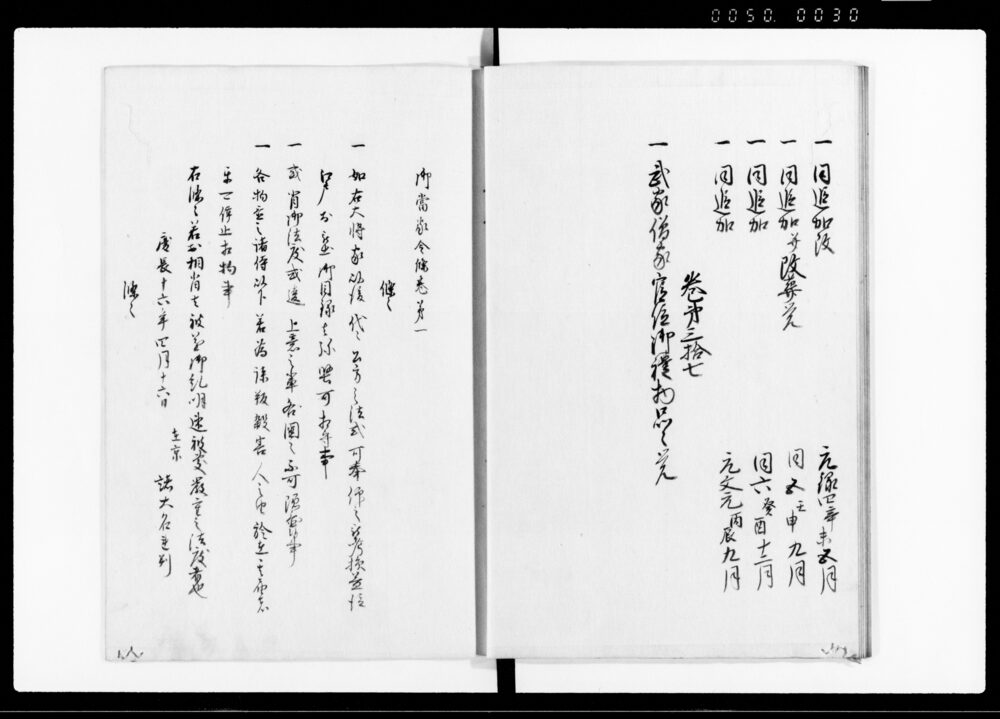 0050. 0030
一 同追加改
一 同追加并改葬之覚
一 同追加
一 同追加
元禄四辛未五月
同五壬申九月
同六癸酉十二月
元文元丙辰九月
巻第三拾七
一 武家僧家官位御礼物品々之覚
御当家令條巻第一
條々
一 如右大将家以後代々公方之法式可奉仰之被考損益而自
江戸於被出御目録者弥堅可相守事
一 或背御法度或違上意之輩各国々不可隠置事
一 各抱置之諸侍以下若為諫叛殺害人之由於在其届者
互可停止相拘事
右條々若於相背者被遂御糺明速被処厳重之法度者也
慶長十六年四月十六日 在京 諸大名連判
條々